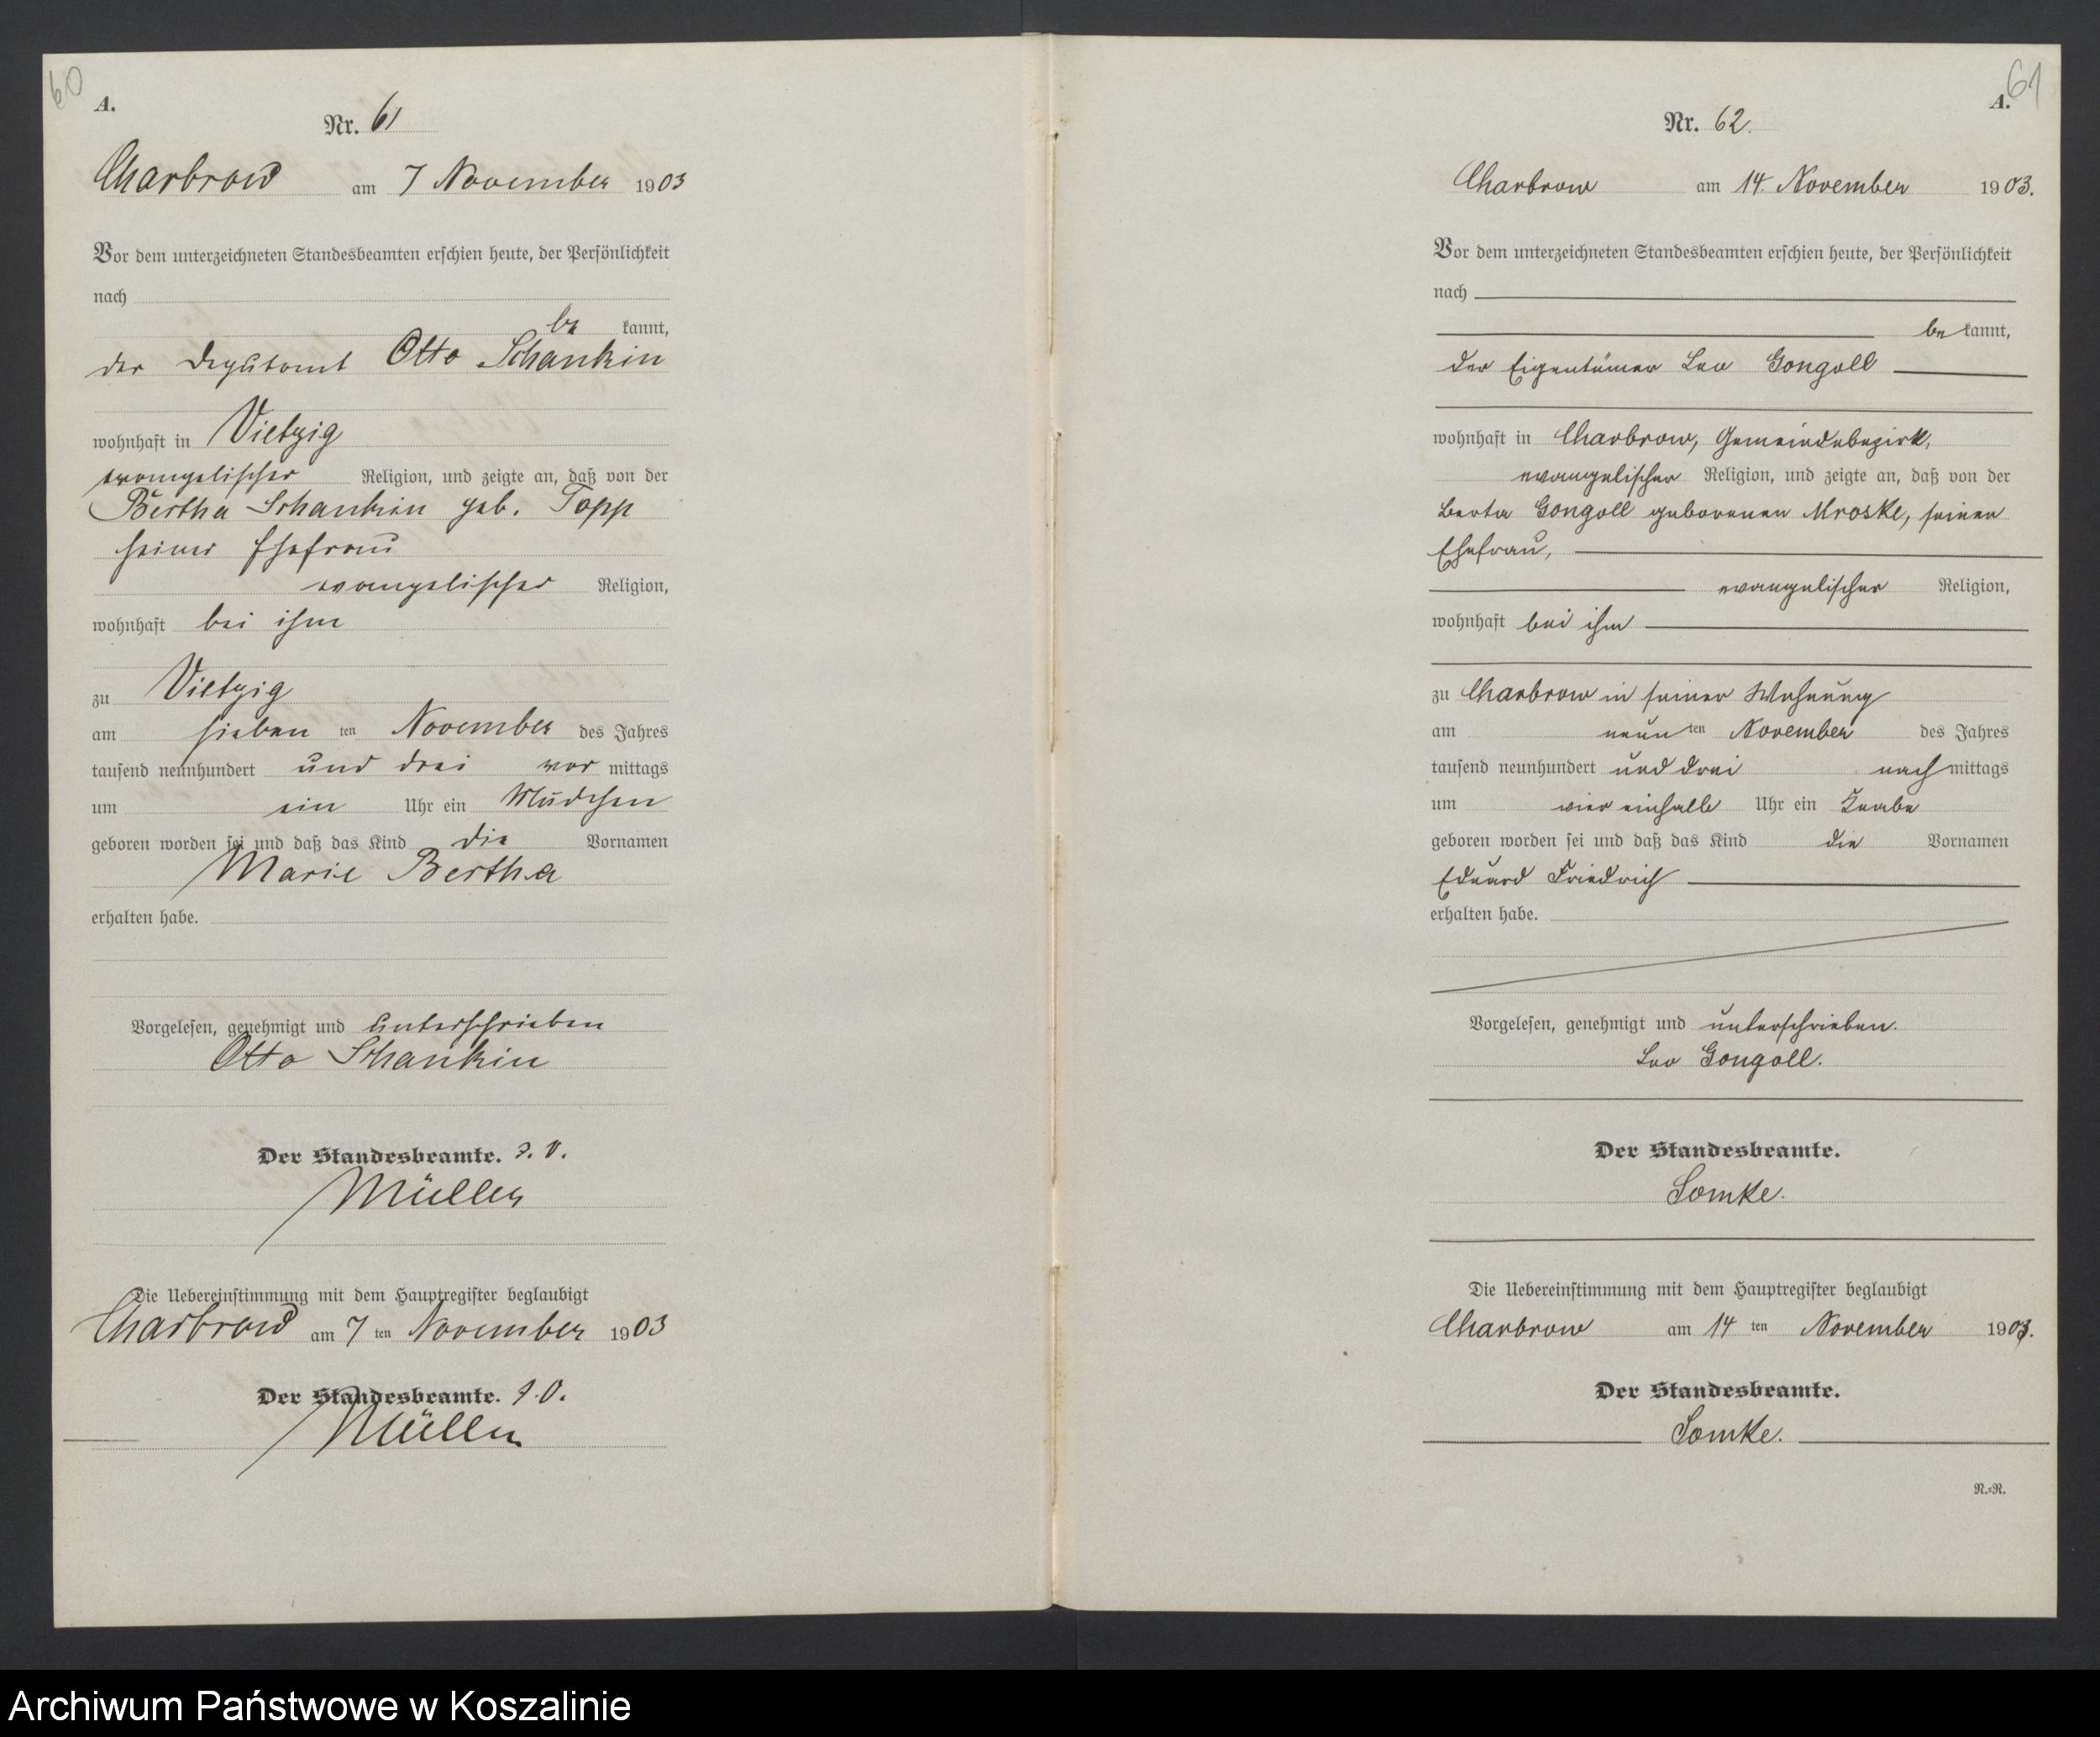 60
A.
Nr. 61
Charbrow am 7 November 1903
Vor dem unterzeichneten Standesbeamten erschien heute, der Persönlichkeit
nach
be kannt,
der Deputant Otto Schankin
wohnhaft in Vietzig
evangelischer Religion, und zeigte an, daß von der
Bertha Schankin geb. Topp
seiner Ehefrau
evangelischer Religion,
wohnhaft bei ihm
zu Vietzig
am sieben ten November des Jahres
tausend neunhundert und drei vor mittags
um ein Uhr ein Mädchen
geboren worden sei und daß das Kind die Vornamen
Marie Bertha
erhalten habe.
Vorgelesen, genehmigt und unterschrieben
Otto Schankin
Der Standesbeamte. I. V.
Müller
Die Uebereinstimmung mit dem Hauptregister beglaubigt
Charbrow am 7 ten November 1903
Der Standesbeamte. I. V.
Müller
61
A.
Nr. 62.
Charbrow am 14. November 1903.
Vor dem unterzeichneten Standesbeamten erschien heute, der Persönlichkeit
nach
be kannt,
der Eigentümer Leo Gongoll
wohnhaft in Charbrow, Gemeindebezirk,
evangelischer Religion, und zeigte an, daß von der
Berta Gongoll geborenen Mroske, seiner
Ehefrau,
evangelischer Religion,
wohnhaft bei ihm
zu Charbrow in seiner Wohnung
am neun ten November des Jahres
tausend neunhundert und drei nach mittags
um vier einhalb Uhr ein Knabe
geboren worden sei und daß das Kind die Vornamen
Eduard Friedrich
erhalten habe.
Vorgelesen, genehmigt und unterschrieben.
Leo Gongoll.
Der Standesbeamte.
Lomke.
Die Uebereinstimmung mit dem Hauptregister beglaubigt
Charbrow am 14 ten November 1903.
Der Standesbeamte.
Lomke.
N.=N.
Archiwum Państwowe w Koszalinie